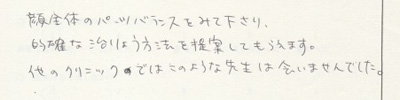 顔全体のパーツバランスをみて下さり、
的確な治りょう方法を提案してもらえます。
他のクリニックではこのような先生は会いませんでした。